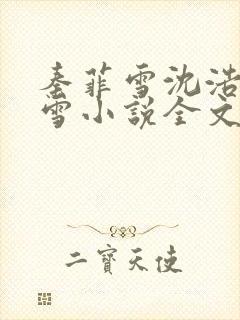 秦菲雪沈浩
雪小说全文
二寶天使